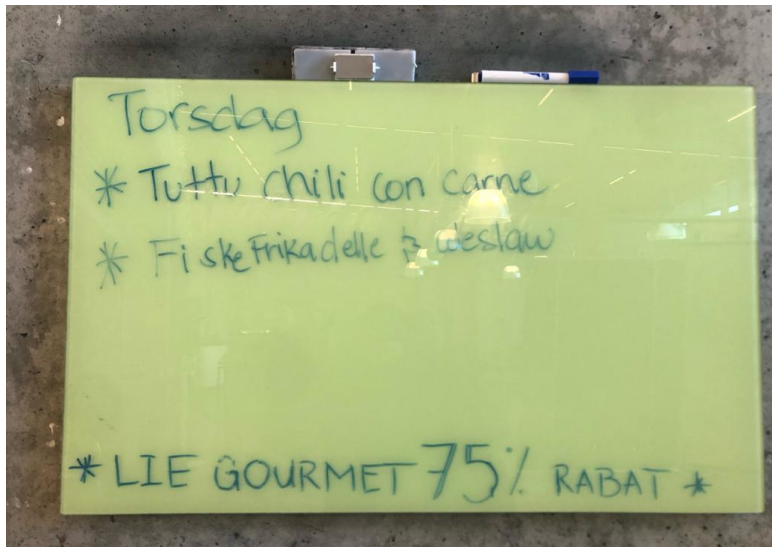 Torsdag
* Tuttu chili con carne
* Fiskefrikadelle
* LIE GOURMET 75% RABAT *